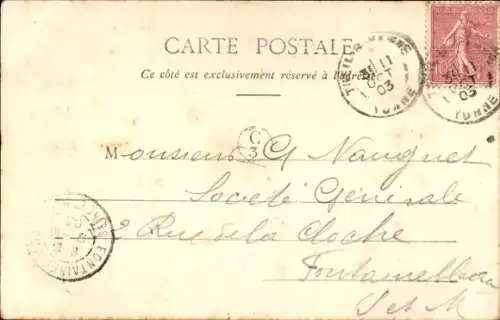 CARTE POSTALE
Ce côté est exclusivement réservé à l'adresse
11 OCT 03
YONNE
OCT 03
YONNE
C 3
Monsieur G Nauguet
Société Générale
2 Rue de la Cloche
Fontainebleau
S et M
FONTAINE